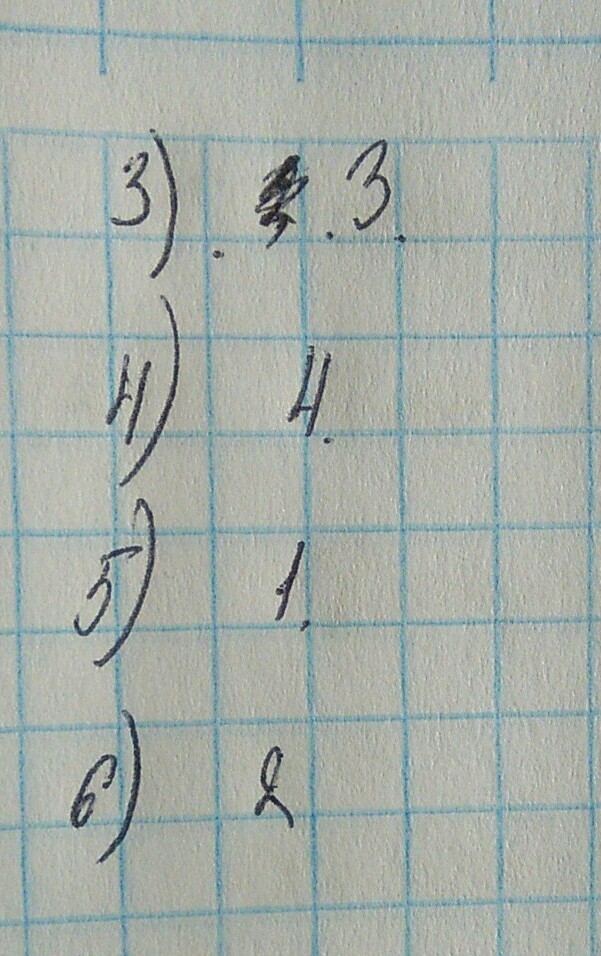 3) . . 3.
4) 4.
5) 1.
6) 2